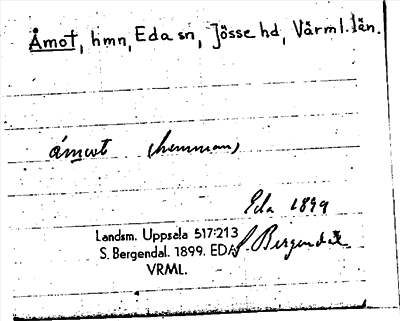 Åmot, hmn, Eda sn, Jösse hd, Värml. län.
åmωt (hemman)
Eda 1899
Landsm. Uppsala 517:213
S. Bergendal. 1899. EDA
VRML.
S. Bergendal